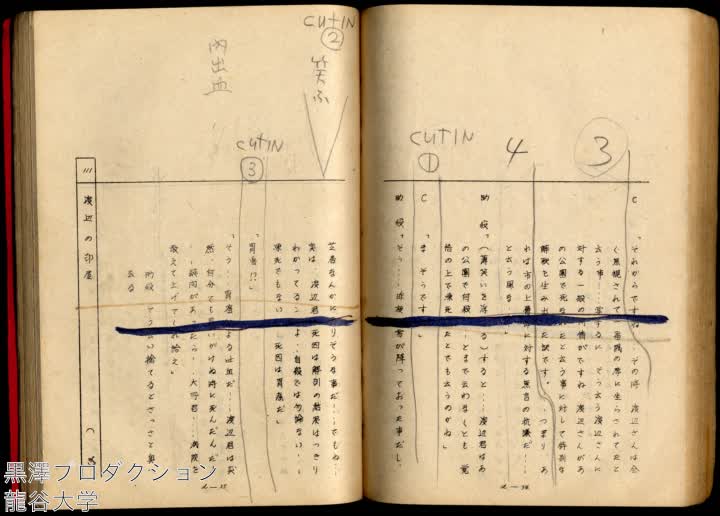 3
4
CUTIN
①
C 「それからですね その時 渡辺さんは全
く無視されて
云う事 そう云う渡辺さんに
対する一般の同情がですね 渡辺さんがあ
の公園で死なれたと云う事に対して
解釈を生み出した訳です。つまり あ
れは市の上層部に対する無言の抗議だ…
と云う風な」
助役「(薄笑いを浮べ)すると…渡辺君はあ
の公園で自殺…とまで云わなくとも 覚
悟の上で凍死したとでも云うのかね」
C 「ま そうです」
助役「そう… 近頃 雪が降っておった事だし、
芝居なんかにありそうな事だ… でもね…
実は、渡辺君の死因は解剖の結果はっきり
わかってるんだよ 自殺では勿論ない…
凍死でもない 死因は胃癌だ」
「胃癌!?」
「そう… 胃癌による出血だ… 渡辺君は突
然 自分でも思いがけぬ時に死んだんだ
…疑問があったら… 大野君… 病院
教えて上げてくれ給え」
助役 そう云い捨てるとさっさと奥
去る
CUTIN
②
笑ふ
CUTIN
③
内出血
渡辺の部屋
黒澤プロダクション
龍谷大学